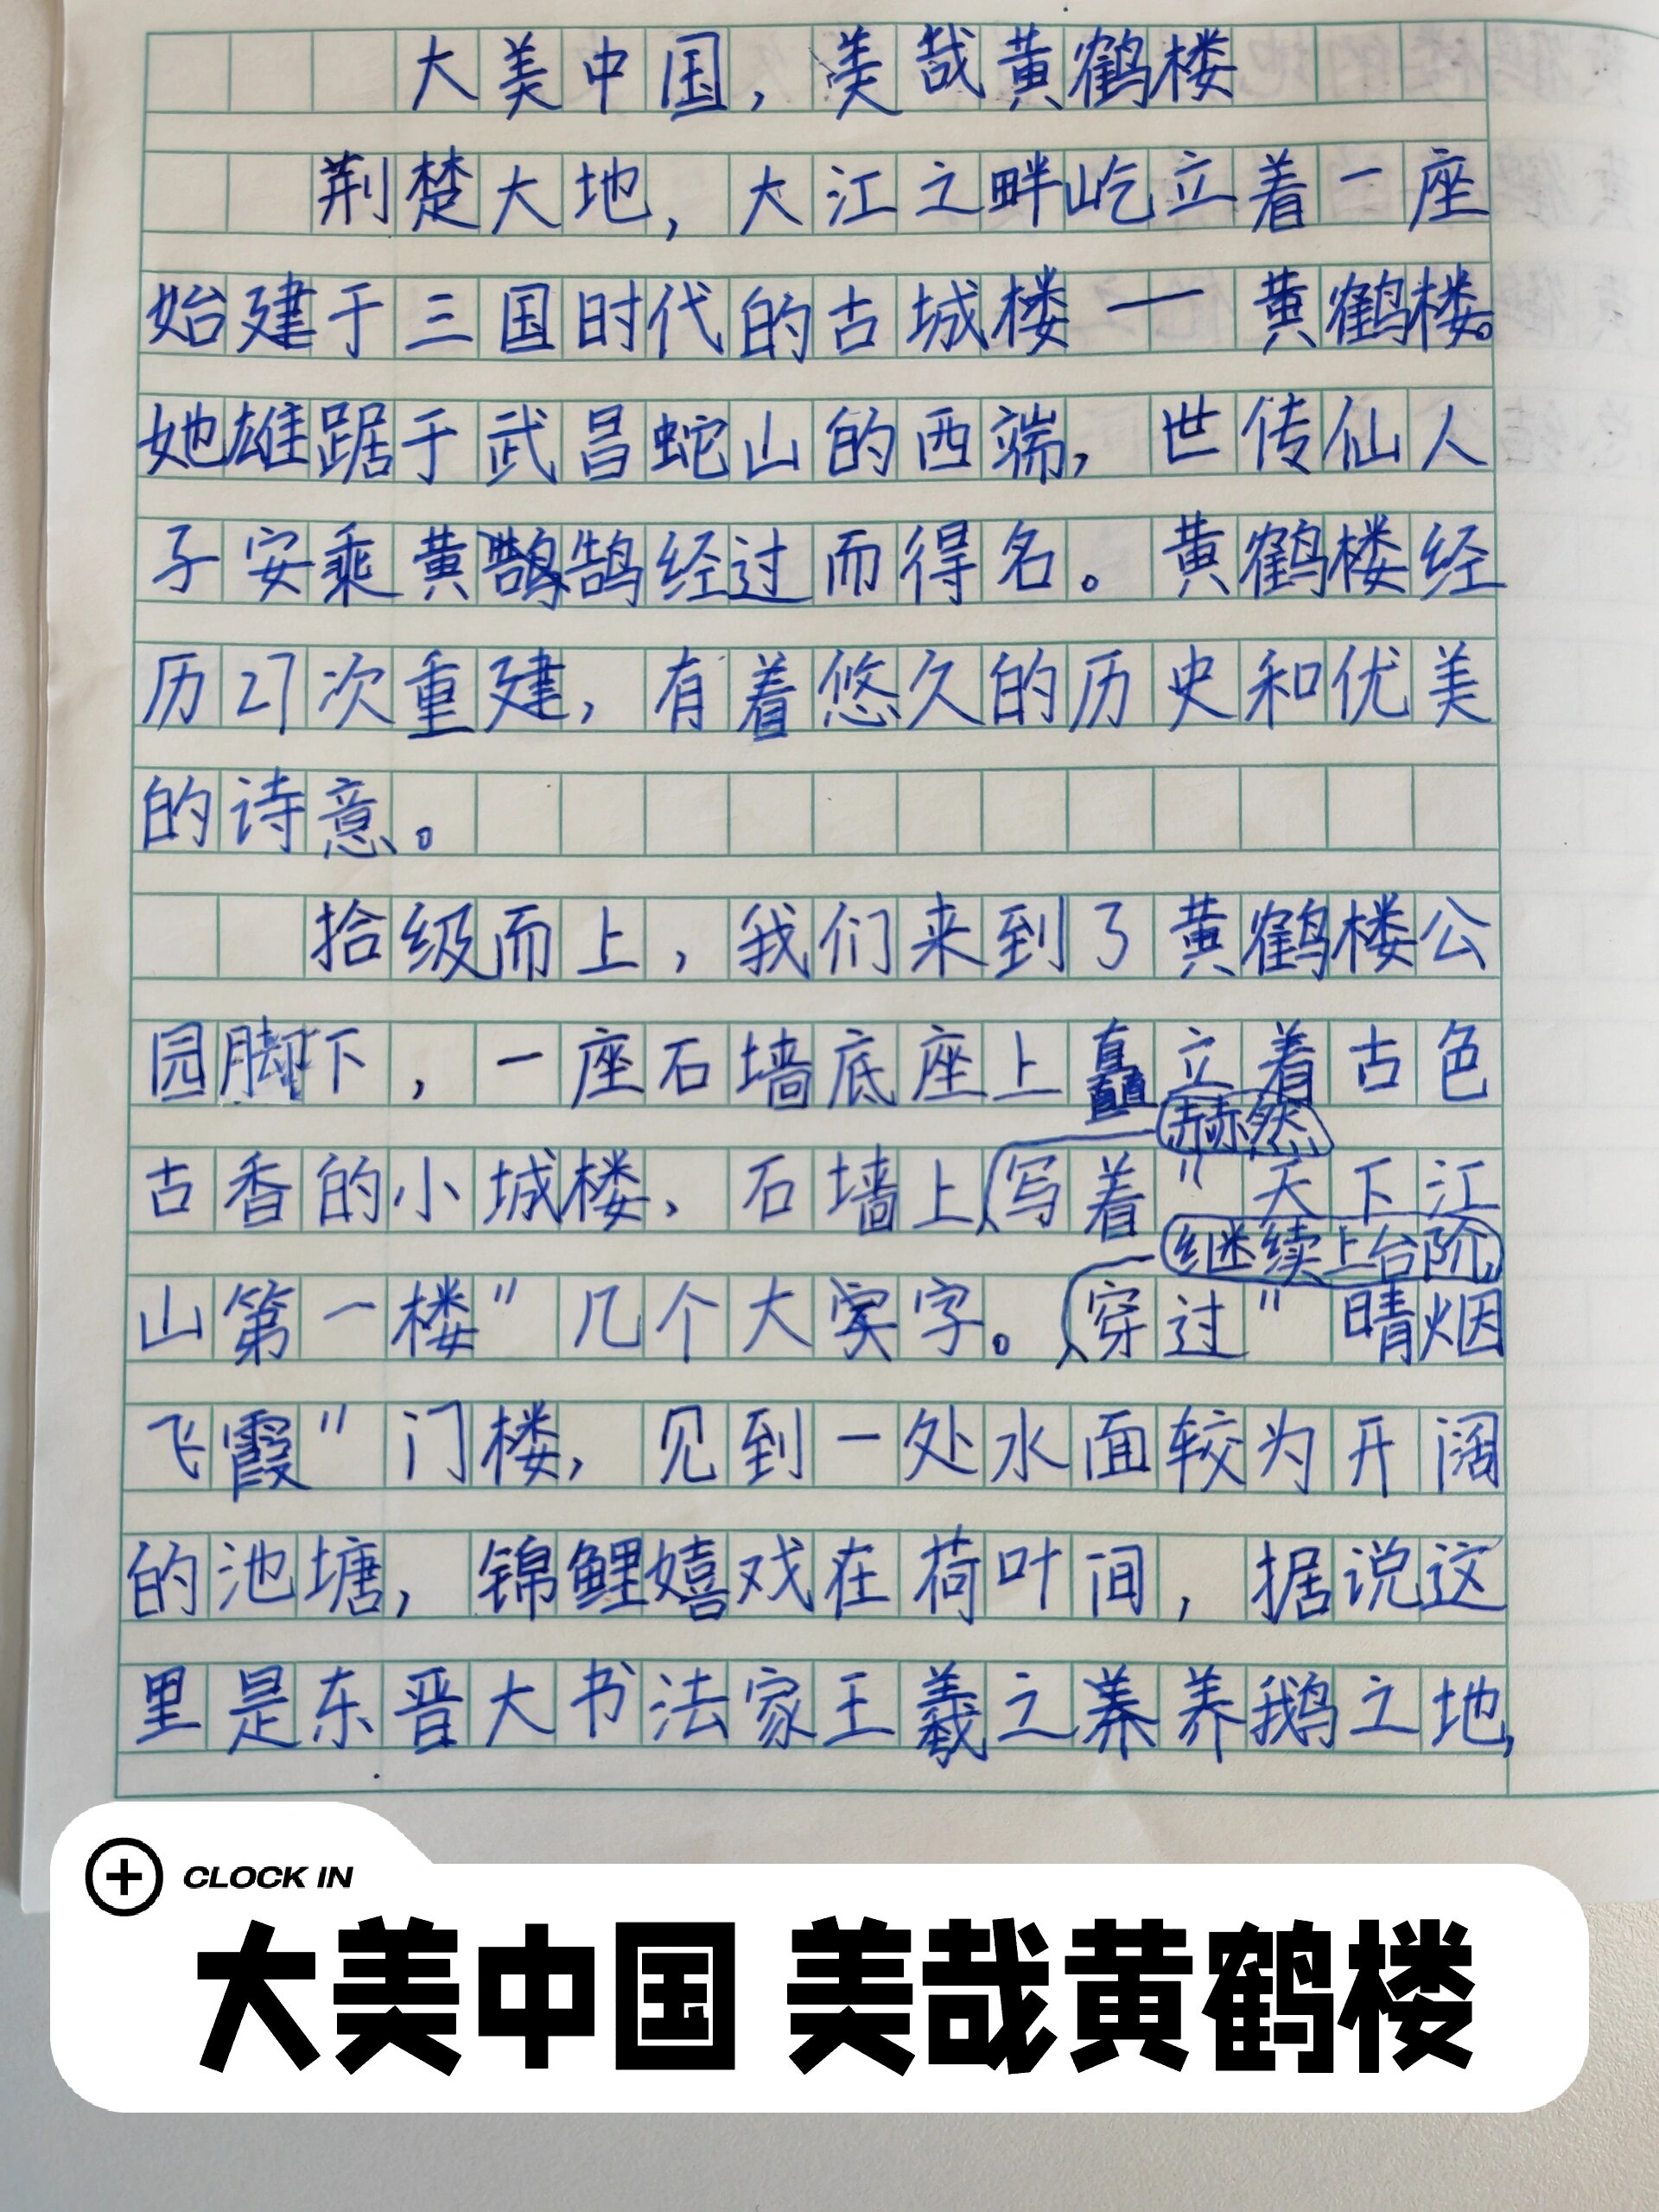 大美中国，美哉黄鹤楼
荆楚大地，大江之畔屹立着一座
始建于三国时代的古城楼——黄鹤楼。
她雄踞于武昌蛇山的西端，世传仙人
子安乘黄鹄鹄经过而得名。黄鹤楼经
历27次重建，有着悠久的历史和优美
的诗意。
拾级而上，我们来到了黄鹤楼公
园脚下，一座石墙底座上矗立着古色
赫然
古香的小城楼，石墙上写着"天下江
继续上台阶
山第一楼"几个大字。穿过"晴烟
飞霞"门楼，见到一处水面较为开阔
的池塘，锦鲤嬉戏在荷叶间，据说这
里是东晋大书法家王羲之养鹅之地，
CLOCK IN
大美中国 美哉黄鹤楼